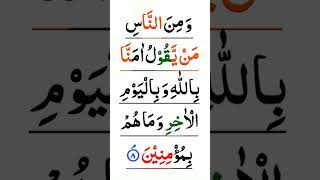 وَمِنَ النَّاسِ
مَنْ يَّقُوْلُ اٰمَنَّا
بِاللّٰهِ وَبِالْيَوْمِ
الْاٰخِرِ وَمَا هُمْ
بِمُؤْمِنِيْنَ ۘ ﴿۸﴾